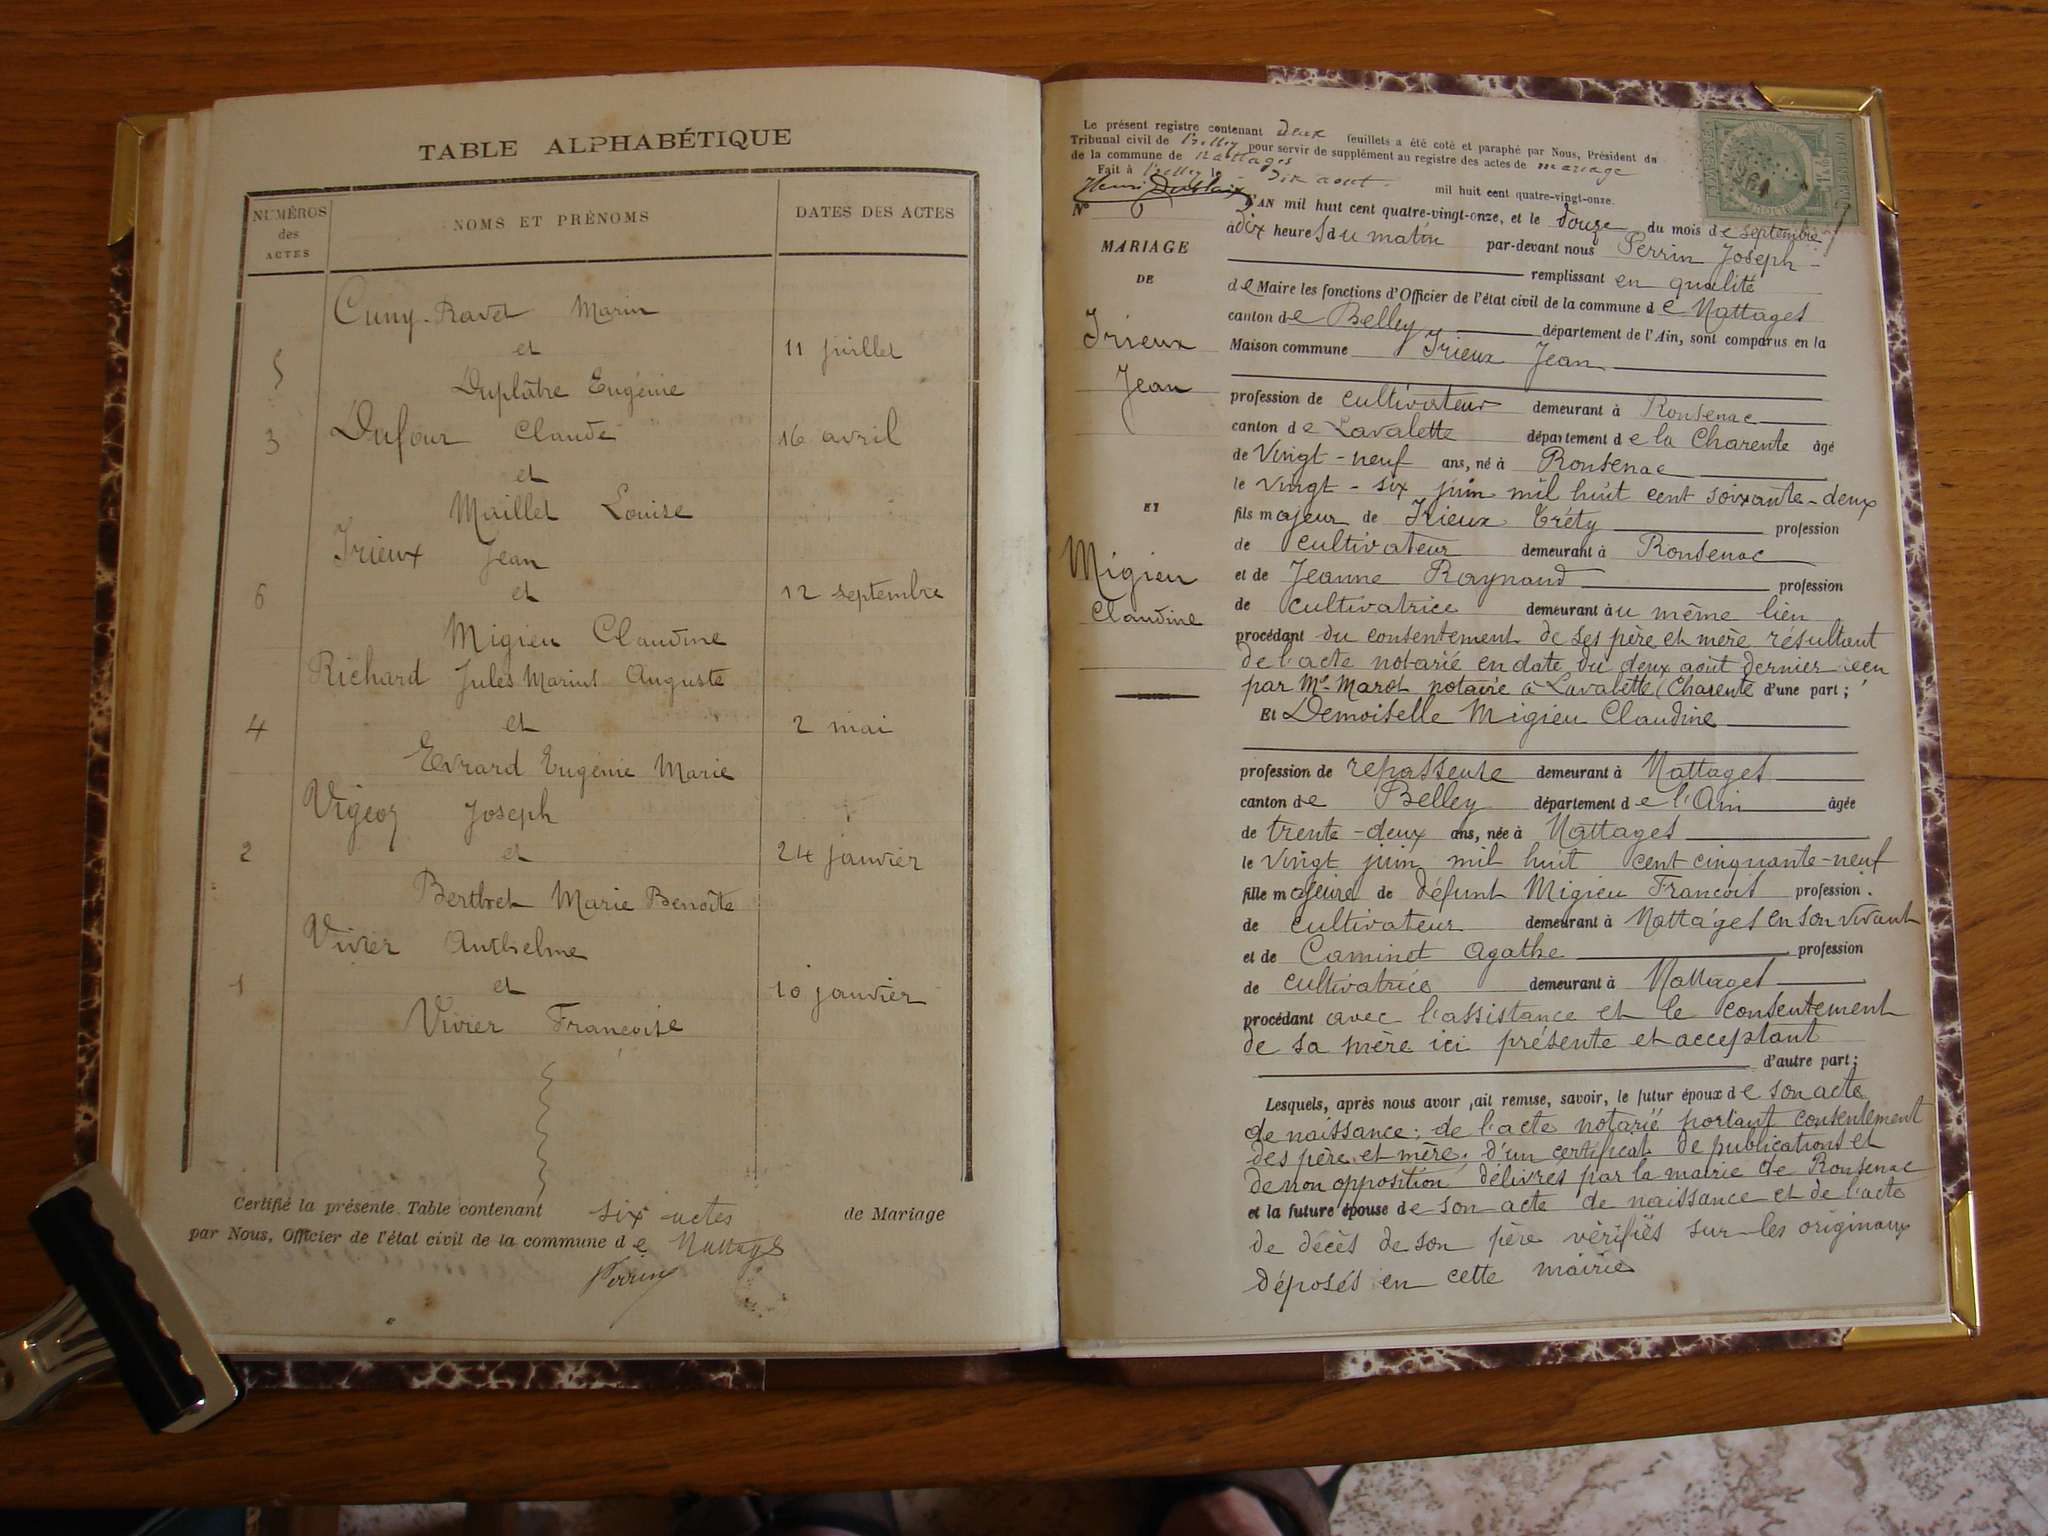 TABLE ALPHABÉTIQUE
NUMÉROS des ACTES
NOMS ET PRÉNOMS
DATES DES ACTES
Cuny-Ravet Marin
et
5
11 juillet
Duplâtre Eugénie
3
Dufour Claude
16 avril
et
Maillet Louise
Irieux Jean
6
et
12 septembre
Migieu Claudine
Richard Jules Marius Auguste
4
et
2 mai
Evrard Eugénie Marie
Vigeoz Joseph
2
et
24 janvier
Berthet Marie Benoîte
Vivier Anthelme
1
et
10 janvier
Vivier Françoise
Certifié la présente Table contenant six actes de Mariage
par Nous, Officier de l'état civil de la commune de Nattages
Perrin
Le présent registre contenant deux feuillets a été coté et paraphé par Nous, Président du
Tribunal civil de Belley pour servir de supplément au registre des actes de mariage
de la commune de Nattages
Fait à Belley le dix août mil huit cent quatre-vingt-onze.
N° 6
L'AN mil huit cent quatre-vingt-onze, et le douze du mois de septembre
à dix heures du matin par-devant nous Perrin Joseph
remplissant en qualité
de Maire les fonctions d'Officier de l'état civil de la commune de Nattages
canton de Belley département de l'Ain, sont comparus en la
Maison commune Irieux Jean
MARIAGE
DE
Irieux
Jean
ET
Migieu
Claudine
profession de cultivateur demeurant à Ronsenac
canton de Lavalette département de la Charente âgé
de Vingt-neuf ans, né à Ronsenac
le vingt-six juin mil huit cent soixante-deux
fils majeur de Irieux Tréty profession
de cultivateur demeurant à Ronsenac
et de Jeanne Raynaud profession
de cultivatrice demeurant au même lieu
procédant du consentement de ses père et mère résultant
de l'acte notarié en date du deux août dernier reçu
par Me Marot notaire à Lavalette (Charente d'une part;
Et Demoiselle Migieu Claudine
profession de repasseuse demeurant à Nattages
canton de Belley département de l'Ain âgée
de trente-deux ans, née à Nattages
le vingt juin mil huit cent cinquante-neuf
fille majeure de défunt Migieu François profession
de cultivateur demeurant à Nattages en son vivant
et de Caminet Agathe profession
de cultivatrice demeurant à Nattages
procédant avec l'assistance et le consentement
de sa mère ici présente et acceptant
d'autre part;
Lesquels, après nous avoir fait remise, savoir, le futur époux de son acte
de naissance; de l'acte notarié portant consentement
des père et mère; d'un certificat de publications et
de non opposition délivrés par la mairie de Ronsenac
et la future épouse de son acte de naissance et de l'acte
de décès de son père vérifiés sur les originaux
déposés en cette mairie